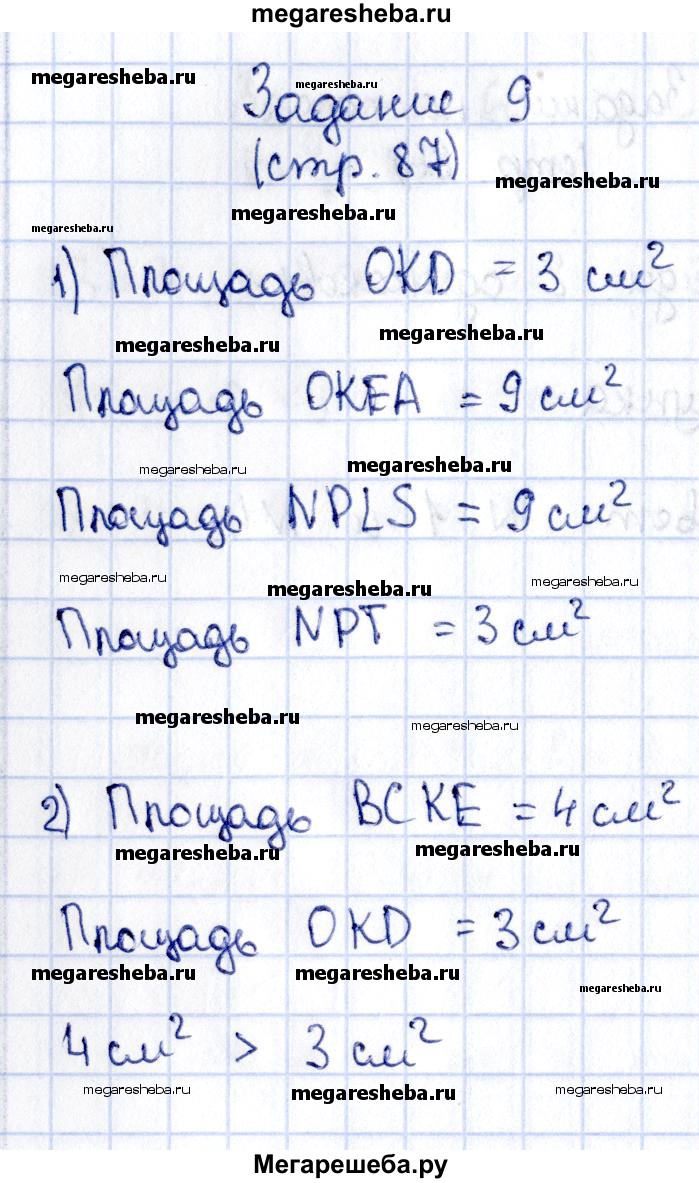 megaresheba.ru
megaresheba.ru
megaresheba.ru
Задание 9
(стр. 87)
megaresheba.ru
megaresheba.ru
megaresheba.ru
1) Площадь OKD = 3 см²
megaresheba.ru
megaresheba.ru
Площадь OKEA = 9 см²
megaresheba.ru
megaresheba.ru
Площадь NPLS = 9 см²
megaresheba.ru
megaresheba.ru
megaresheba.ru
Площадь NPT = 3 см²
megaresheba.ru
megaresheba.ru
2) Площадь BCKE = 4 см²
megaresheba.ru
megaresheba.ru
Площадь OKD = 3 см²
megaresheba.ru
megaresheba.ru
megaresheba.ru
4 см² > 3 см²
megaresheba.ru
megaresheba.ru
megaresheba.ru
Мегарешеба.ру